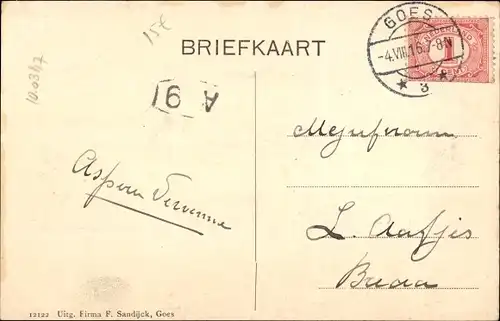 15€
10.0347
BRIEFKAART
GOES
-4.VIII.16.7-8N
3
NEDERLAND
1
A 91
Mejufvrouw
L. Aafjes
Breda
12122 Uitg. Firma F. Sandijck, Goes